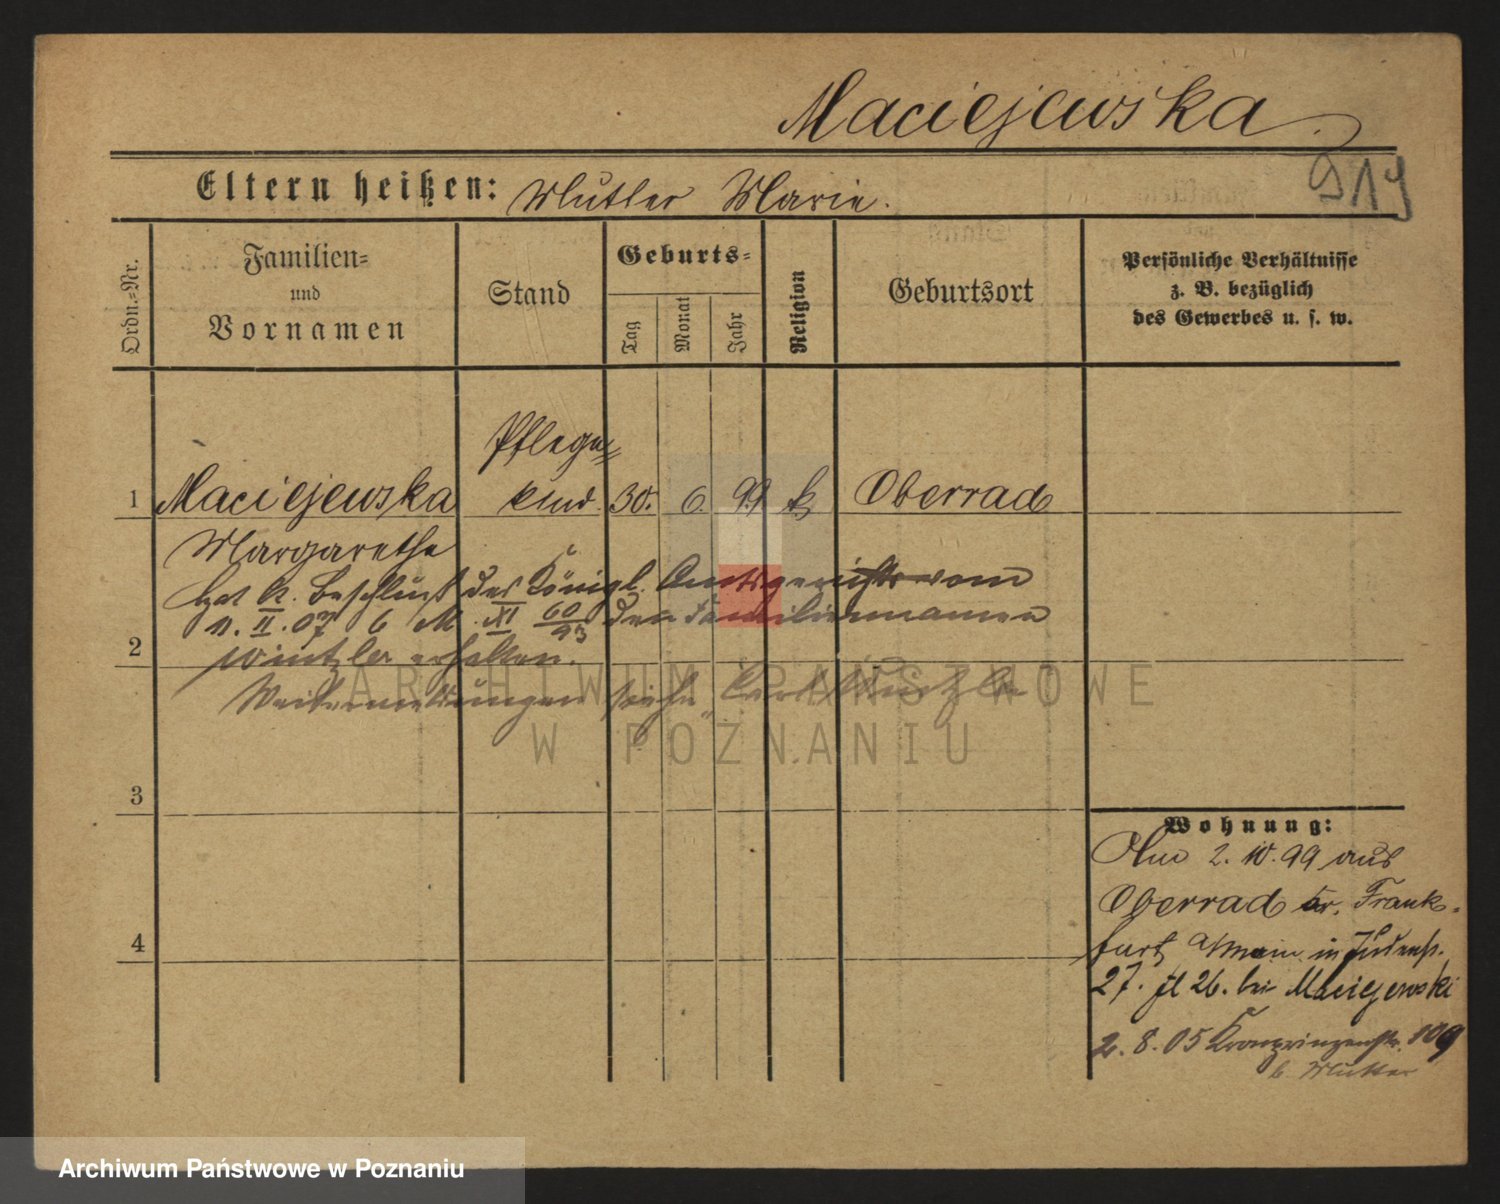 Maciejewska.
919
Eltern heißen: Mutter Marie.
Ordn.-Nr.
Familien-
und
Vornamen
Stand
Geburts-
Tag
Monat
Jahr
Religion
Geburtsort
Persönliche Verhältnisse
z. B. bezüglich
des Gewerbes u. s. w.
Pflege-
1 Maciejewska kind. 30. 6. 99 k Oberrad
Margarethe
hat lt. Beschluß des Königl. Amtsgerichts vom
11. II. 07 6 M XI 60/93 den Familiennamen
2
Wintzler erhalten.
Weitermeldungen siehe
ARCHIWUM PAŃSTWOWE
W POZNANIU
3
4
Wohnung:
2. 10. 99 aus
Oberrad Kr. Frank-
furt a/Main in Judenstr.
27. II 26. bei Maciejewski
2. 8. 05 Kronprinzenstr. 109
b. Mutter
Archiwum Państwowe w Poznaniu